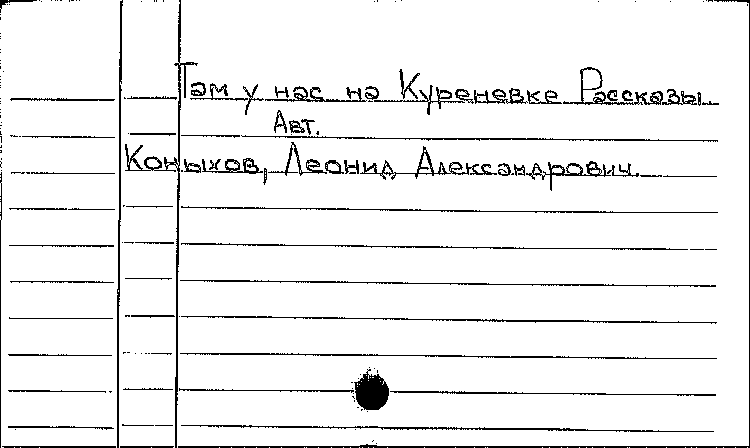 Там у нас на Куреневке Рассказы.
Авт.
Коныхов, Леонид Александрович.